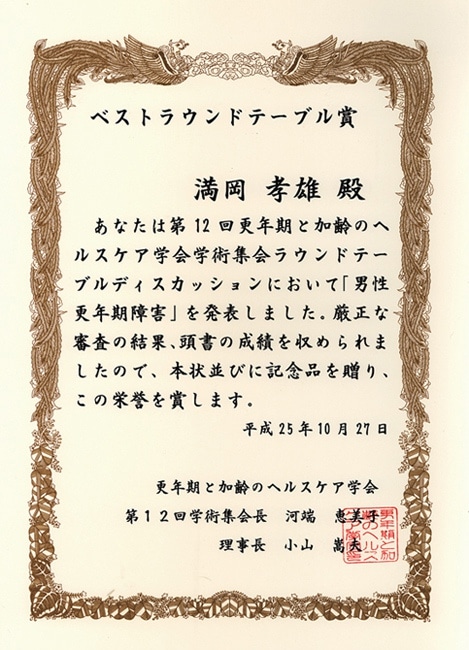 ベストラウンドテーブル賞
満岡 孝雄 殿
あなたは第12回更年期と加齢のヘ
ルスケア学会学術集会ラウンドテー
ブルディスカッションにおいて「男性
更年期障害」を発表しました。厳正な
審査の結果、頭書の成績を収められま
したので、本状並びに記念品を贈り、
この栄誉を賞します。
平成25年10月27日
更年期と加齢のヘルスケア学会
第12回学術集会長 河端 恵美子
理事長 小山 嵩夫